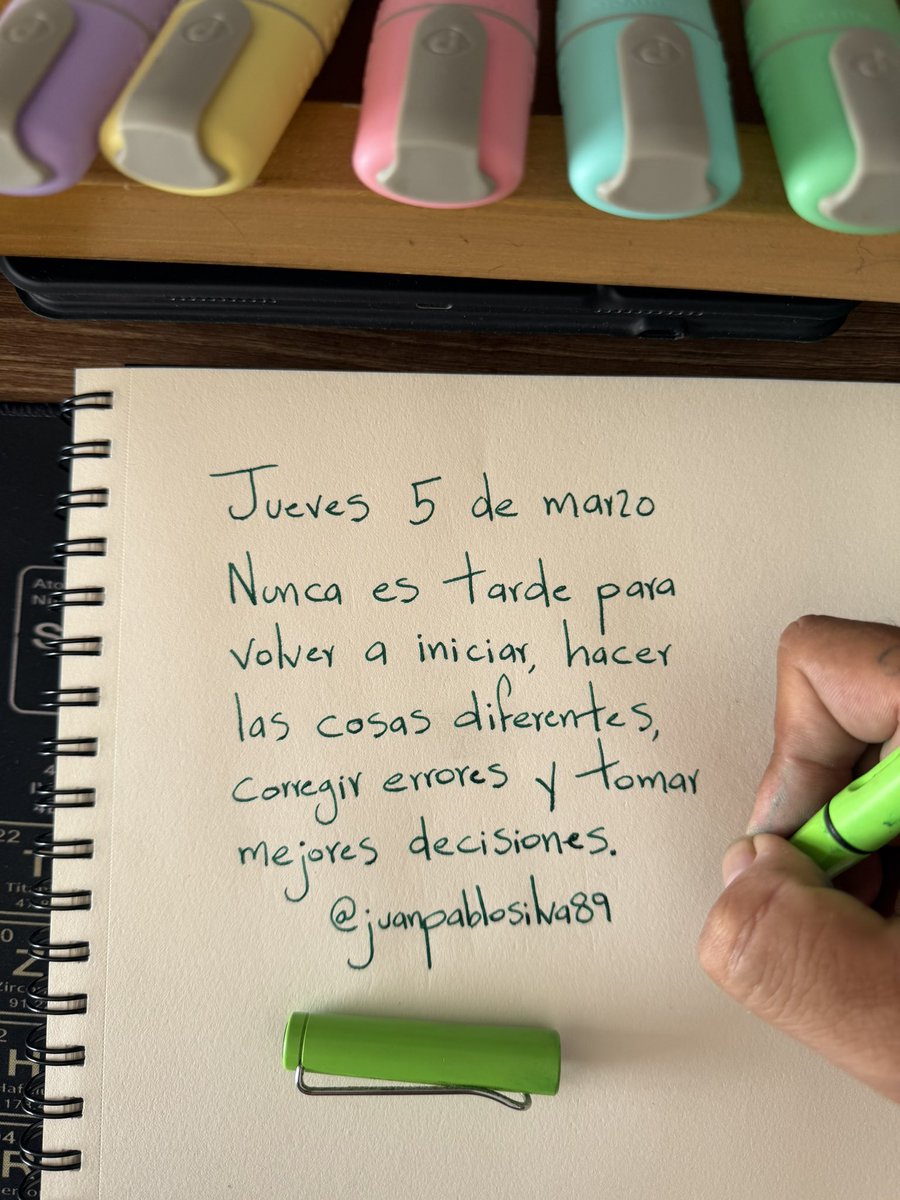 Jueves 5 de marzo
Nunca es tarde para
volver a iniciar, hacer
las cosas diferentes,
corregir errores y tomar
mejores decisiones.
@juanpablosilva89
22
Z